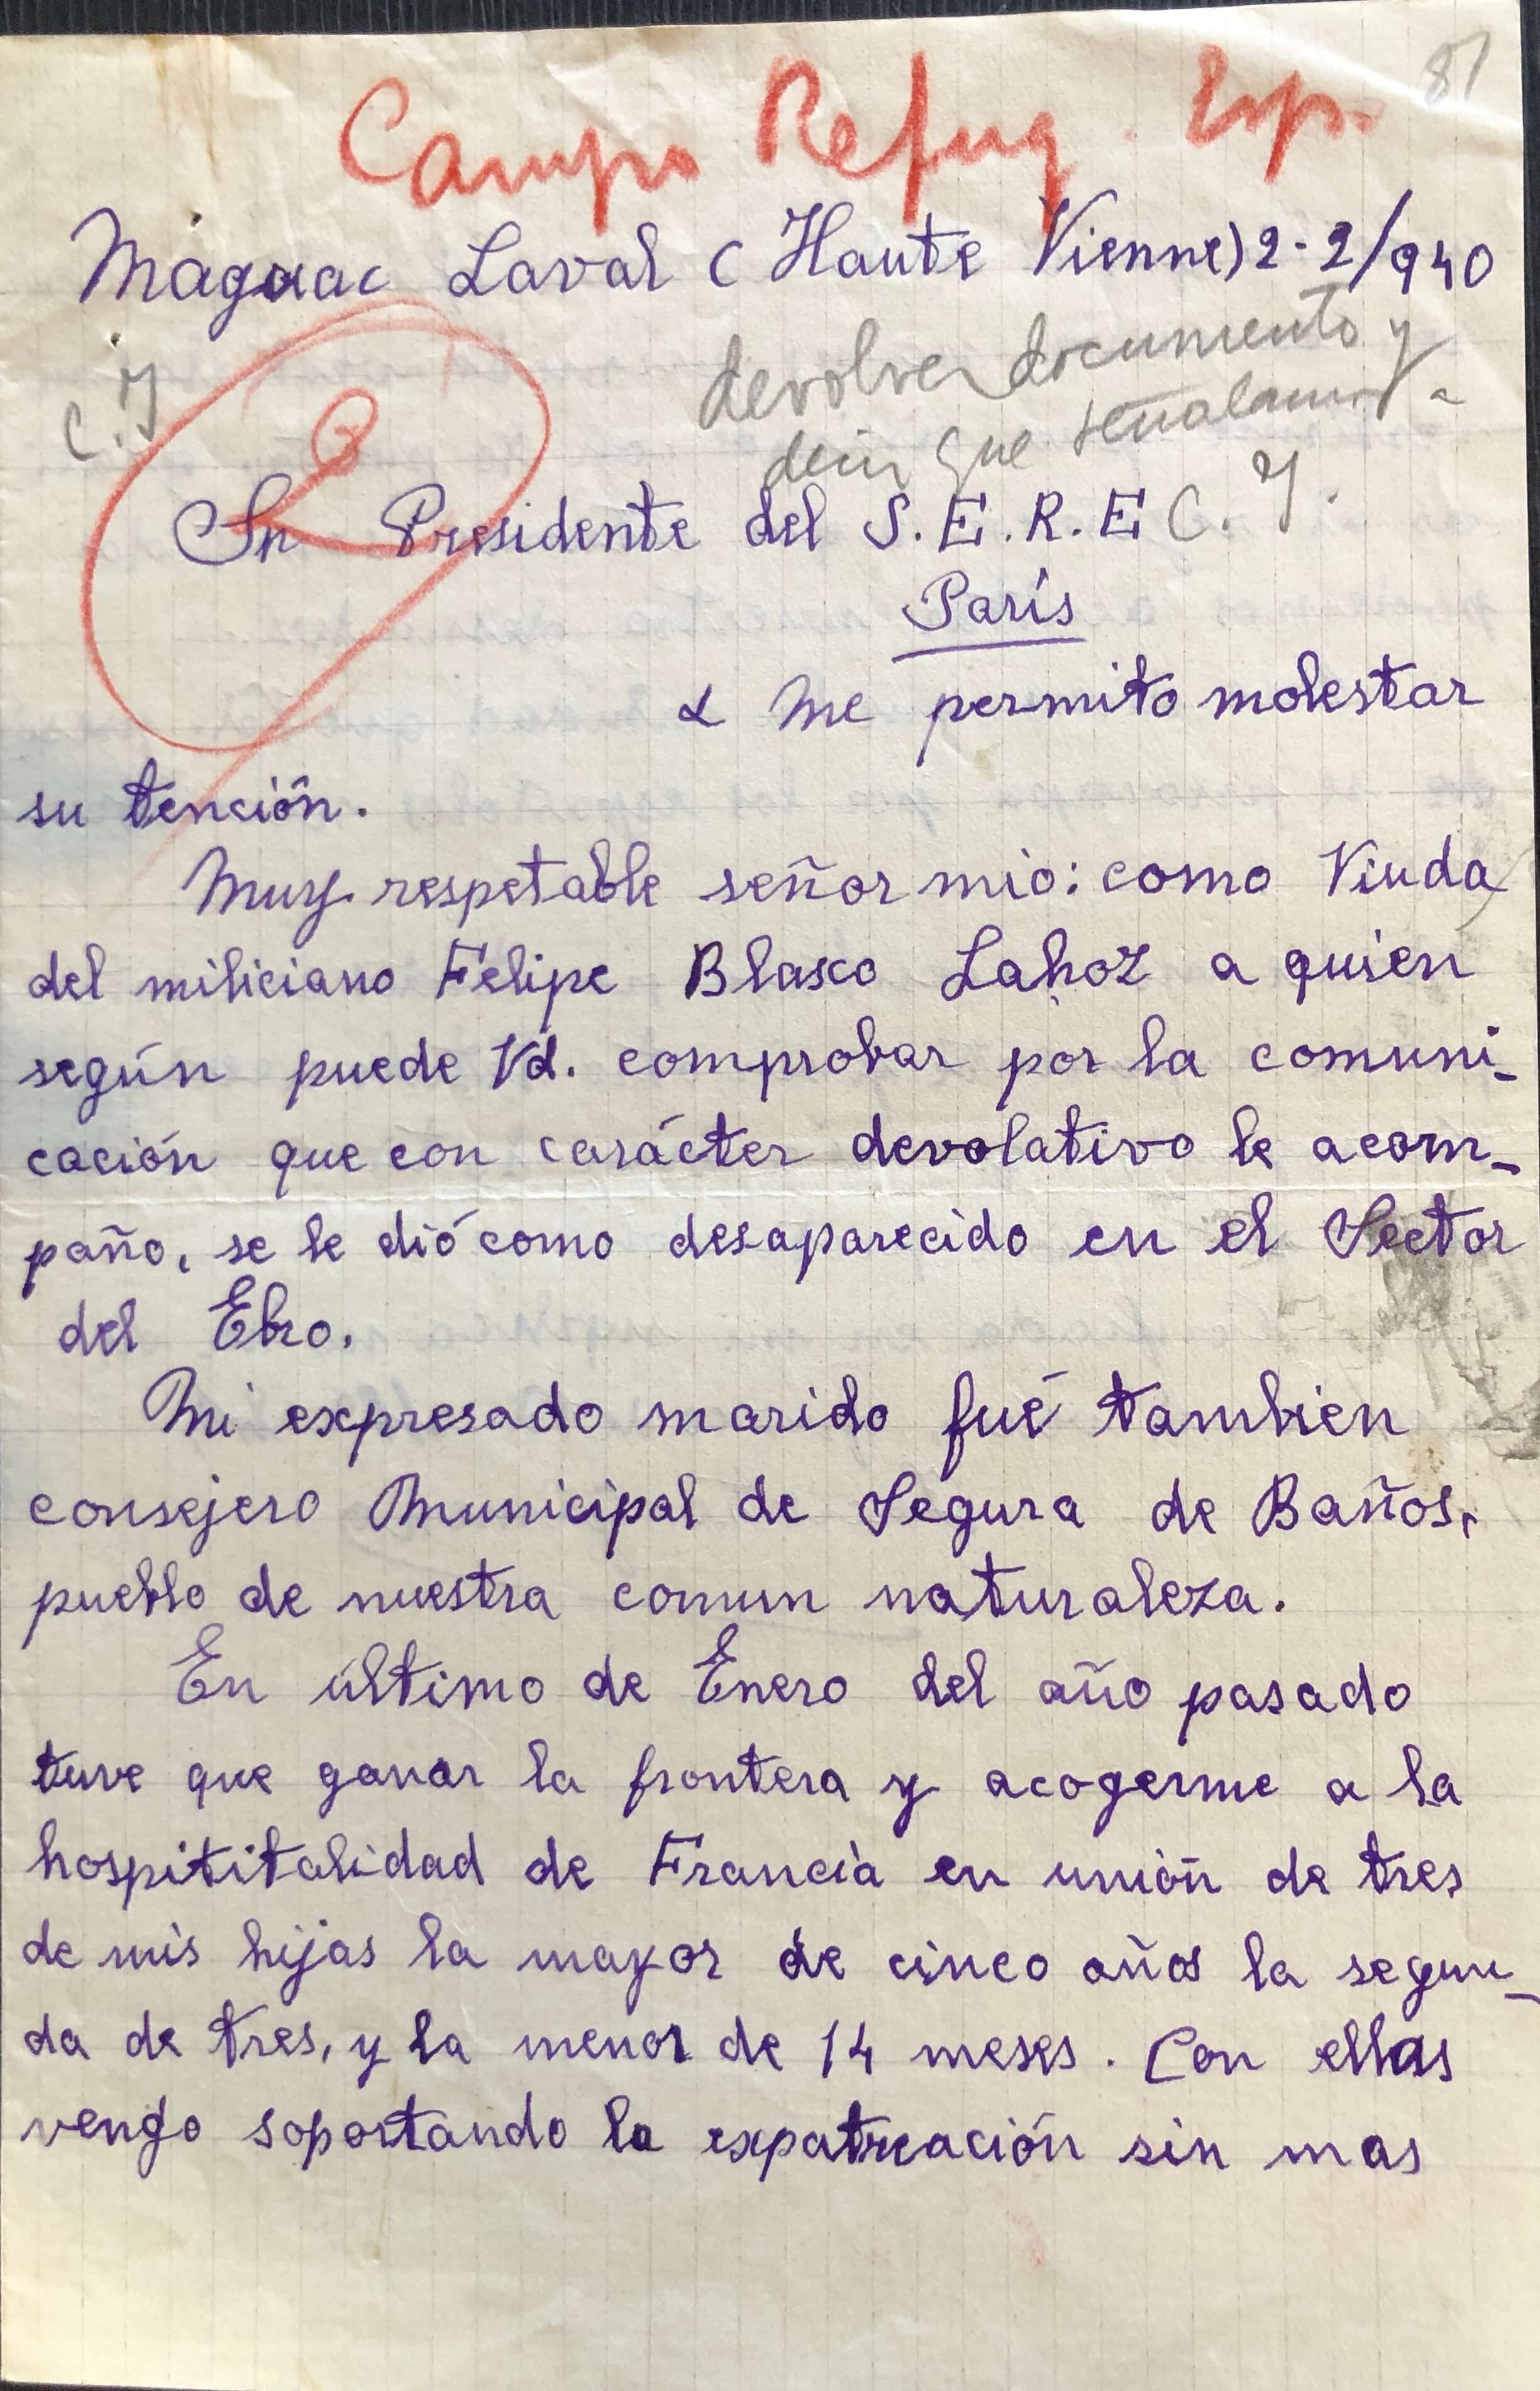 81
Campo Refug. Esp.
Magnac Laval (Haute Vienne) 2-2/940
devolver documento y
C.J
decir que señalamos a
Sr Presidente del S.E.R.E C.J.
París
Me permito molestar
su tención.
Muy respetable señor mio: como Viuda
del miliciano Felipe Blasco Lahoz a quien
según puede Vd. comprobar por la comuni-
cación que con carácter devolativo le acom-
paño, se le dió como desaparecido en el Sector
del Ebro.
Mi expresado marido fué tambien
consejero Municipal de Segura de Baños,
pueblo de nuestra comun naturaleza.
En último de Enero del año pasado
tuve que ganar la frontera y acogerme a la
hospititalidad de Francia en unión de tres
de mis hijas la mayor de cinco años la segun-
da de tres, y la menor de 14 meses. Con ellas
vengo soportando la expatreación sin mas